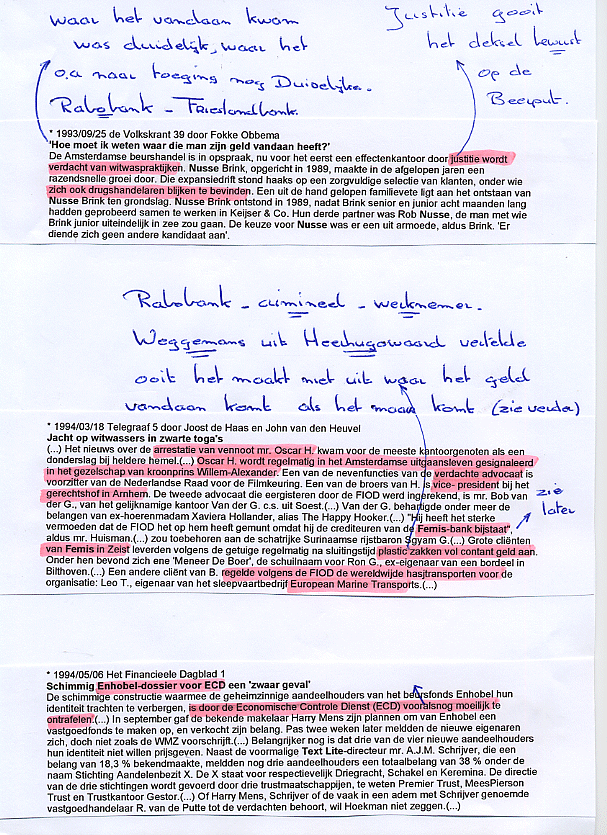 waar het vandaan kwam
was duidelijk, waar het
o.a naar toeging nog Duidelijke.
Rabobank - Frieslandbank.
Justitie gooit
het deksel bewust
op de
Beerput.
* 1993/09/25 de Volkskrant 39 door Fokke Obbema
'Hoe moet ik weten waar die man zijn geld vandaan heeft?'
De Amsterdamse beurshandel is in opspraak, nu voor het eerst een effectenkantoor door justitie wordt
verdacht van witwaspraktijken. Nusse Brink, opgericht in 1989, maakte in de afgelopen jaren een
razendsnelle groei door. Die expansiedrift stond haaks op een zorgvuldige selectie van klanten, onder wie
zich ook drugshandelaren blijken te bevinden. Een uit de hand gelopen familievete ligt aan het ontstaan van
Nusse Brink ten grondslag. Nusse Brink ontstond in 1989, nadat Brink senior en junior acht maanden lang
hadden geprobeerd samen te werken in Keijser & Co. Hun derde partner was Rob Nusse, de man met wie
Brink junior uiteindelijk in zee zou gaan. De keuze voor Nusse was er een uit armoede, aldus Brink. 'Er
diende zich geen andere kandidaat aan'.
Rabobank - crimineel - werknemer.
Weggemans uit Heerhugowaard vertelde
ooit het maakt niet uit waar het geld
vandaan komt als het maar komt (zie verder)
* 1994/03/18 Telegraaf 5 door Joost de Haas en John van den Heuvel
Jacht op witwassers in zwarte toga's
(...) Het nieuws over de arrestatie van vennoot mr. Oscar H. kwam voor de meeste kantoorgenoten als een
donderslag bij heldere hemel.(...) Oscar H. wordt regelmatig in het Amsterdamse uitgaansleven gesignaleerd
in het gezelschap van kroonprins Willem-Alexander. Een van de nevenfuncties van de verdachte advocaat is
voorzitter van de Nederlandse Raad voor de Filmkeuring. Een van de broers van H. is vice- president bij het
gerechtshof in Arnhem. De tweede advocaat die eergisteren door de FIOD werd ingerekend, is mr. Bob van
der G., van het gelijknamige kantoor Van der G. c.s. uit Soest.(...) Van der G. behartigde onder meer de
belangen van ex-hoerenmadam Xaviera Hollander, alias The Happy Hooker.(...) "Hij heeft het sterke
vermoeden dat de FIOD het op hem heeft gemunt omdat hij de crediteuren van de Femis-bank bijstaat",
aldus mr. Huisman.(...) zou toebehoren aan de schatrijke Surinaamse rijstbaron Sgyam G.(...) Grote cliënten
van Femis in Zeist leverden volgens de getuige regelmatig na sluitingstijd plastic zakken vol contant geld aan.
Onder hen bevond zich ene 'Meneer De Boer', de schuilnaam voor Ron G., ex-eigenaar van een bordeel in
Bilthoven.(...) Een andere cliënt van B. regelde volgens de FIOD de wereldwijde hasjtransporten voor de
organisatie: Leo T., eigenaar van het sleepvaartbedrijf European Marine Transports.(...)
zie
later
* 1994/05/06 Het Financieele Dagblad 1
Schimmig Enhobel-dossier voor ECD een 'zwaar geval'
De schimmige constructie waarmee de geheimzinnige aandeelhouders van het beursfonds Enhobel hun
identiteit trachten te verbergen, is door de Economische Controle Dienst (ECD) vooralsnog moeilijk te
ontrafelen.(...) In september gaf de bekende makelaar Harry Mens zijn plannen om van Enhobel een
vastgoedfonds te maken op, en verkocht zijn belang. Pas twee weken later melden de nieuwe eigenaren
zich, doch niet zoals de WMZ voorschrijft.(...) Belangrijker nog is dat drie van de vier nieuwe aandeelhouders
hun identiteit niet willen prijsgeven. Naast de voormalige Text Lite-directeur mr. A.J.M. Schrijver, die een
belang van 18,3 % bekendmaakte, meldden nog drie aandeelhouders een totaalbelang van 38 % onder de
naam Stichting Aandelenbezit X. De X staat voor respectievelijk Driegracht, Schakel en Keremina. De directie
van de drie stichtingen wordt gevoerd door drie trustmaatschappijen, te weten Premier Trust, MeesPierson
Trust en Trustkantoor Gestor.(...) Of Harry Mens, Schrijver of de vaak in een adem met Schrijver genoemde
vastgoedhandelaar R. van de Putte tot de verdachten behoort, wil Hoekman niet zeggen.(...)